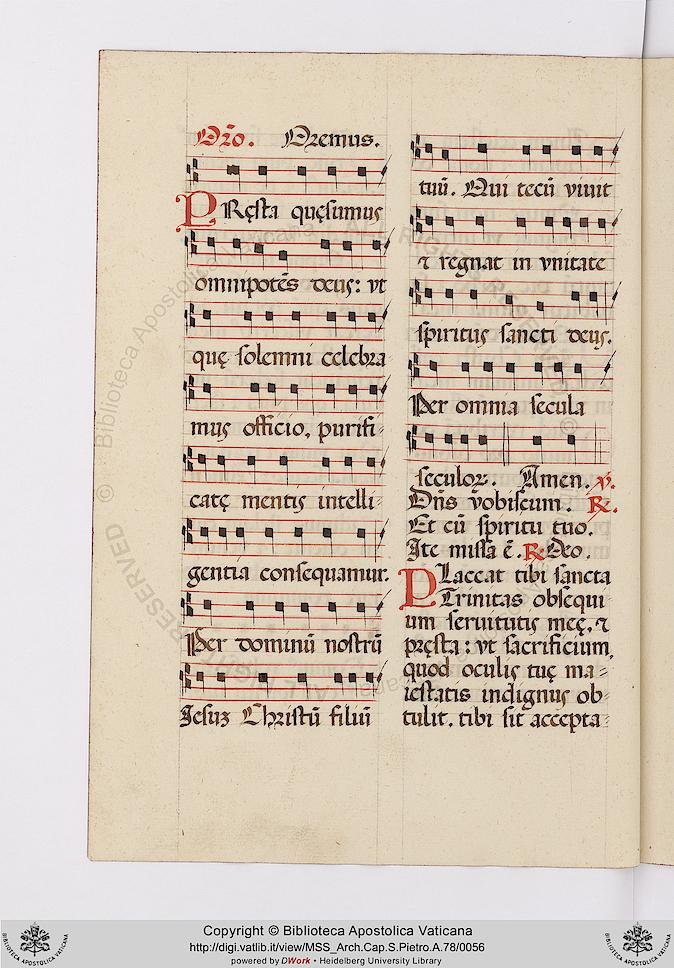 Or̃o. Oremus.
PRęsta quęsumus
omnipotẽs deus: vt
quę solemni celebra
mus officio, purifi-
catę mentis intelli-
gentia consequamur.
Per dominũ nostrũ
Iesuʒ Christũ filiũ
tuũ. Qui tecũ viuit
⁊ regnat in vnitate
spiritus sancti deus.
Per omnia secula
seculoꝝ. Amen. ℣.
Dñs vobiscum. ℟.
Et cũ spiritu tuo.
Ite missa ẽ. ℟. Deo.
PLaceat tibi sancta
Trinitas obsequi
um seruitutis meę, ⁊
pręsta: vt sacrificium,
quod oculis tuę ma-
iestatis indignus ob
tulit. tibi sit accepta-
Copyright © Biblioteca Apostolica Vaticana
http://digi.vatlib.it/view/MSS_Arch.Cap.S.Pietro.A.78/0056
powered by DWork • Heidelberg University Library